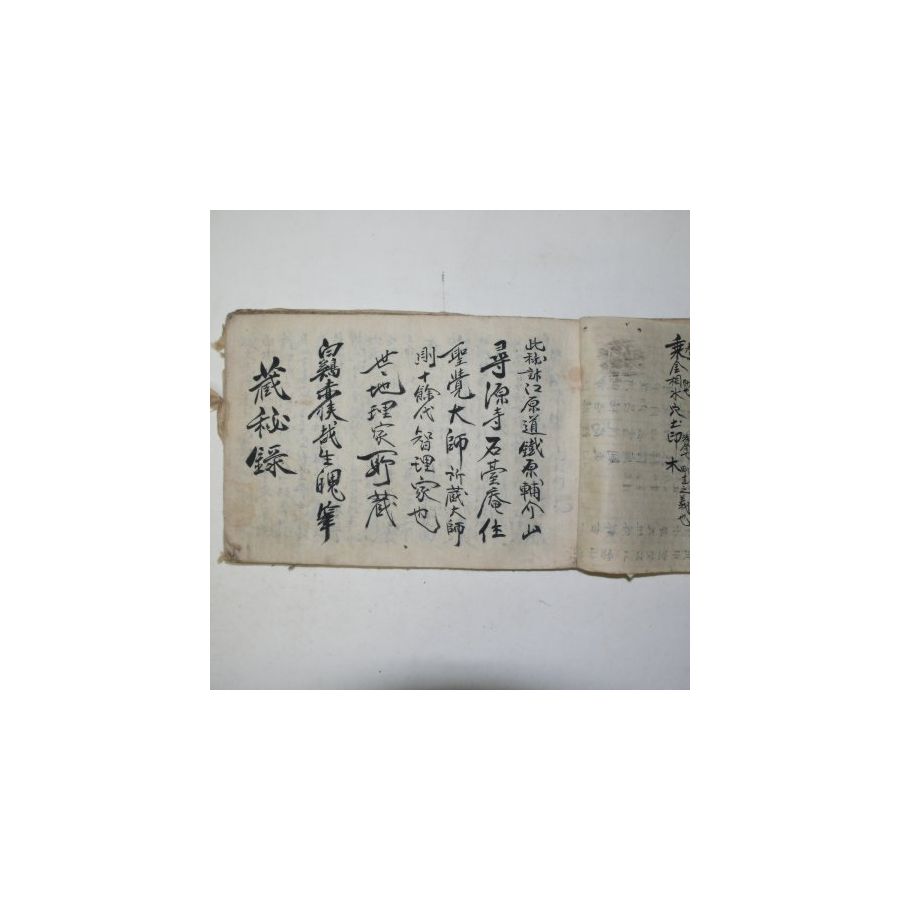 乘金相水穴土印木
此秘訣江原道鐵原輔介山
尋源寺石臺庵住
聖覺大師所藏大師
則十餘代智理家也
世〻地理家所藏
白鷄赤猴哉生魄筆
藏秘錄